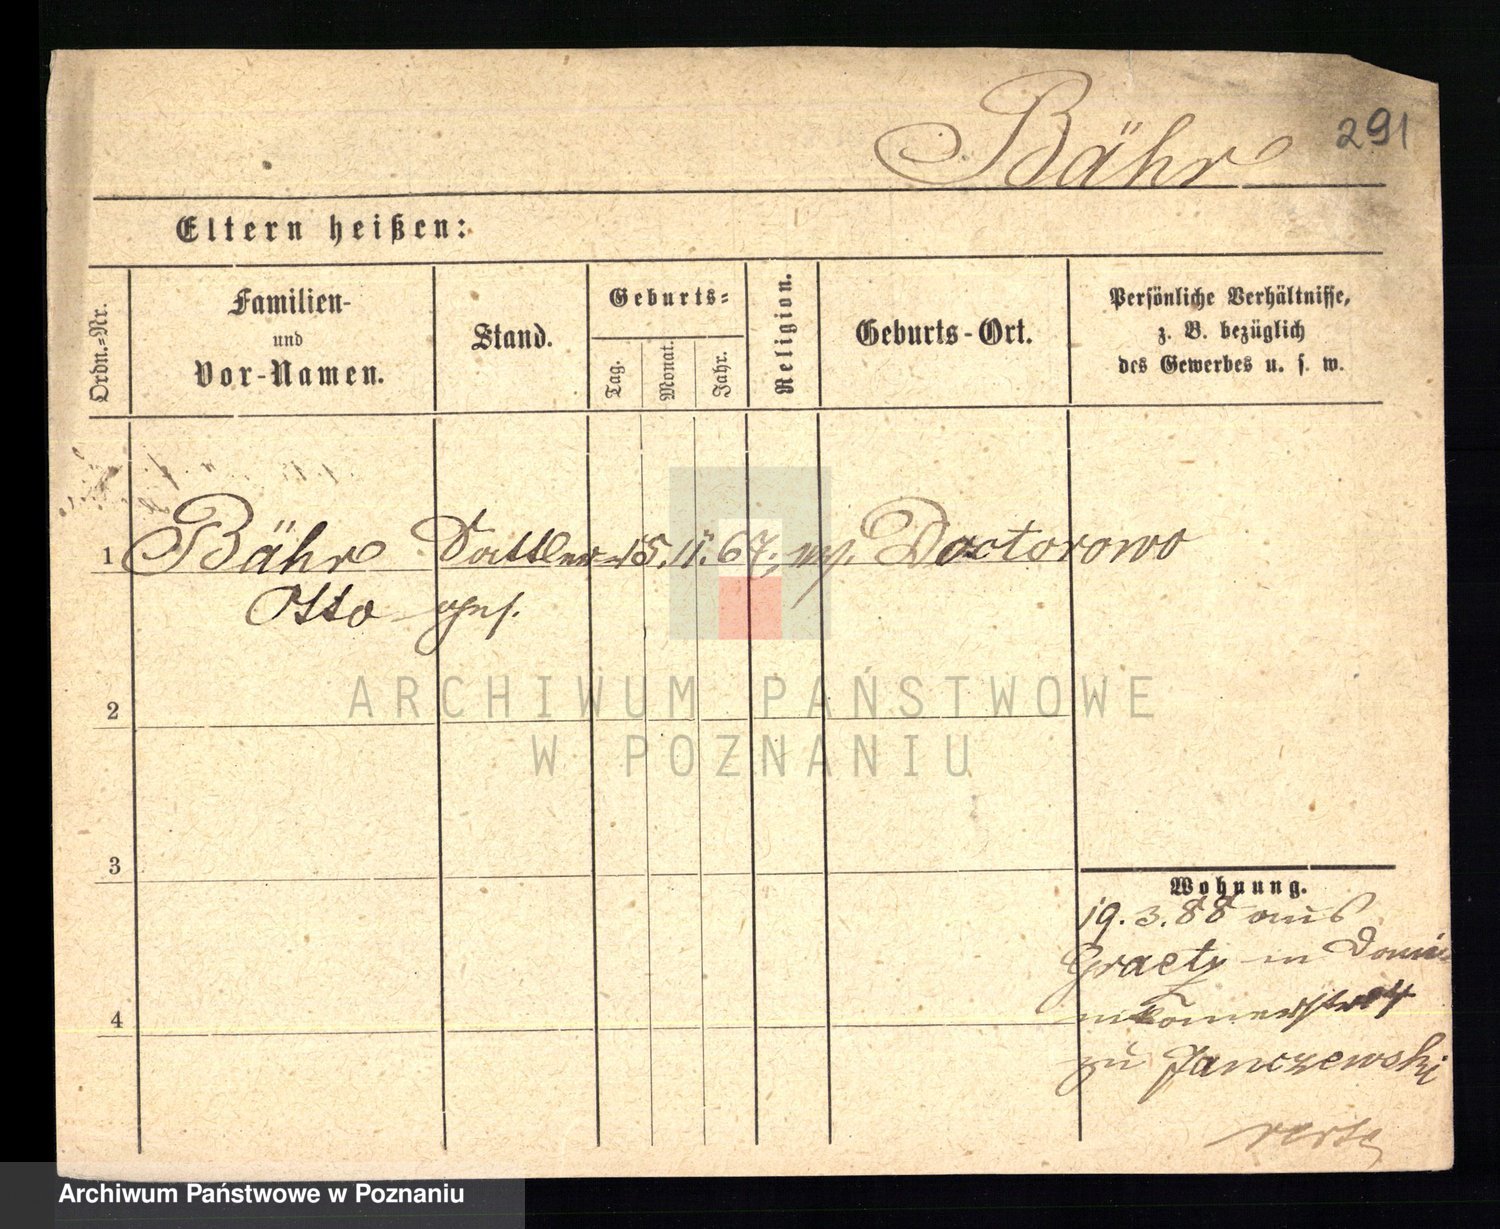 Bähr
291
Eltern heißen:
Ordn.-Nr.
Familien-
und
Vor-Namen.
Stand.
Geburts-
Tag.
Monat.
Jahr.
Religion.
Geburts-Ort.
Persönliche Verhältnisse,
z. B. bezüglich
des Gewerbes u. s. w.
1 Bähr Sattler 15. 11. 67. Doctorowo
Otto
2
3
4
Wohnung.
19. 3. 88 aus
Graetz in Domi-
nikanerstr 4
zu Janczewski
verte
ARCHIWUM PAŃSTWOWE
W POZNANIU
Archiwum Państwowe w Poznaniu